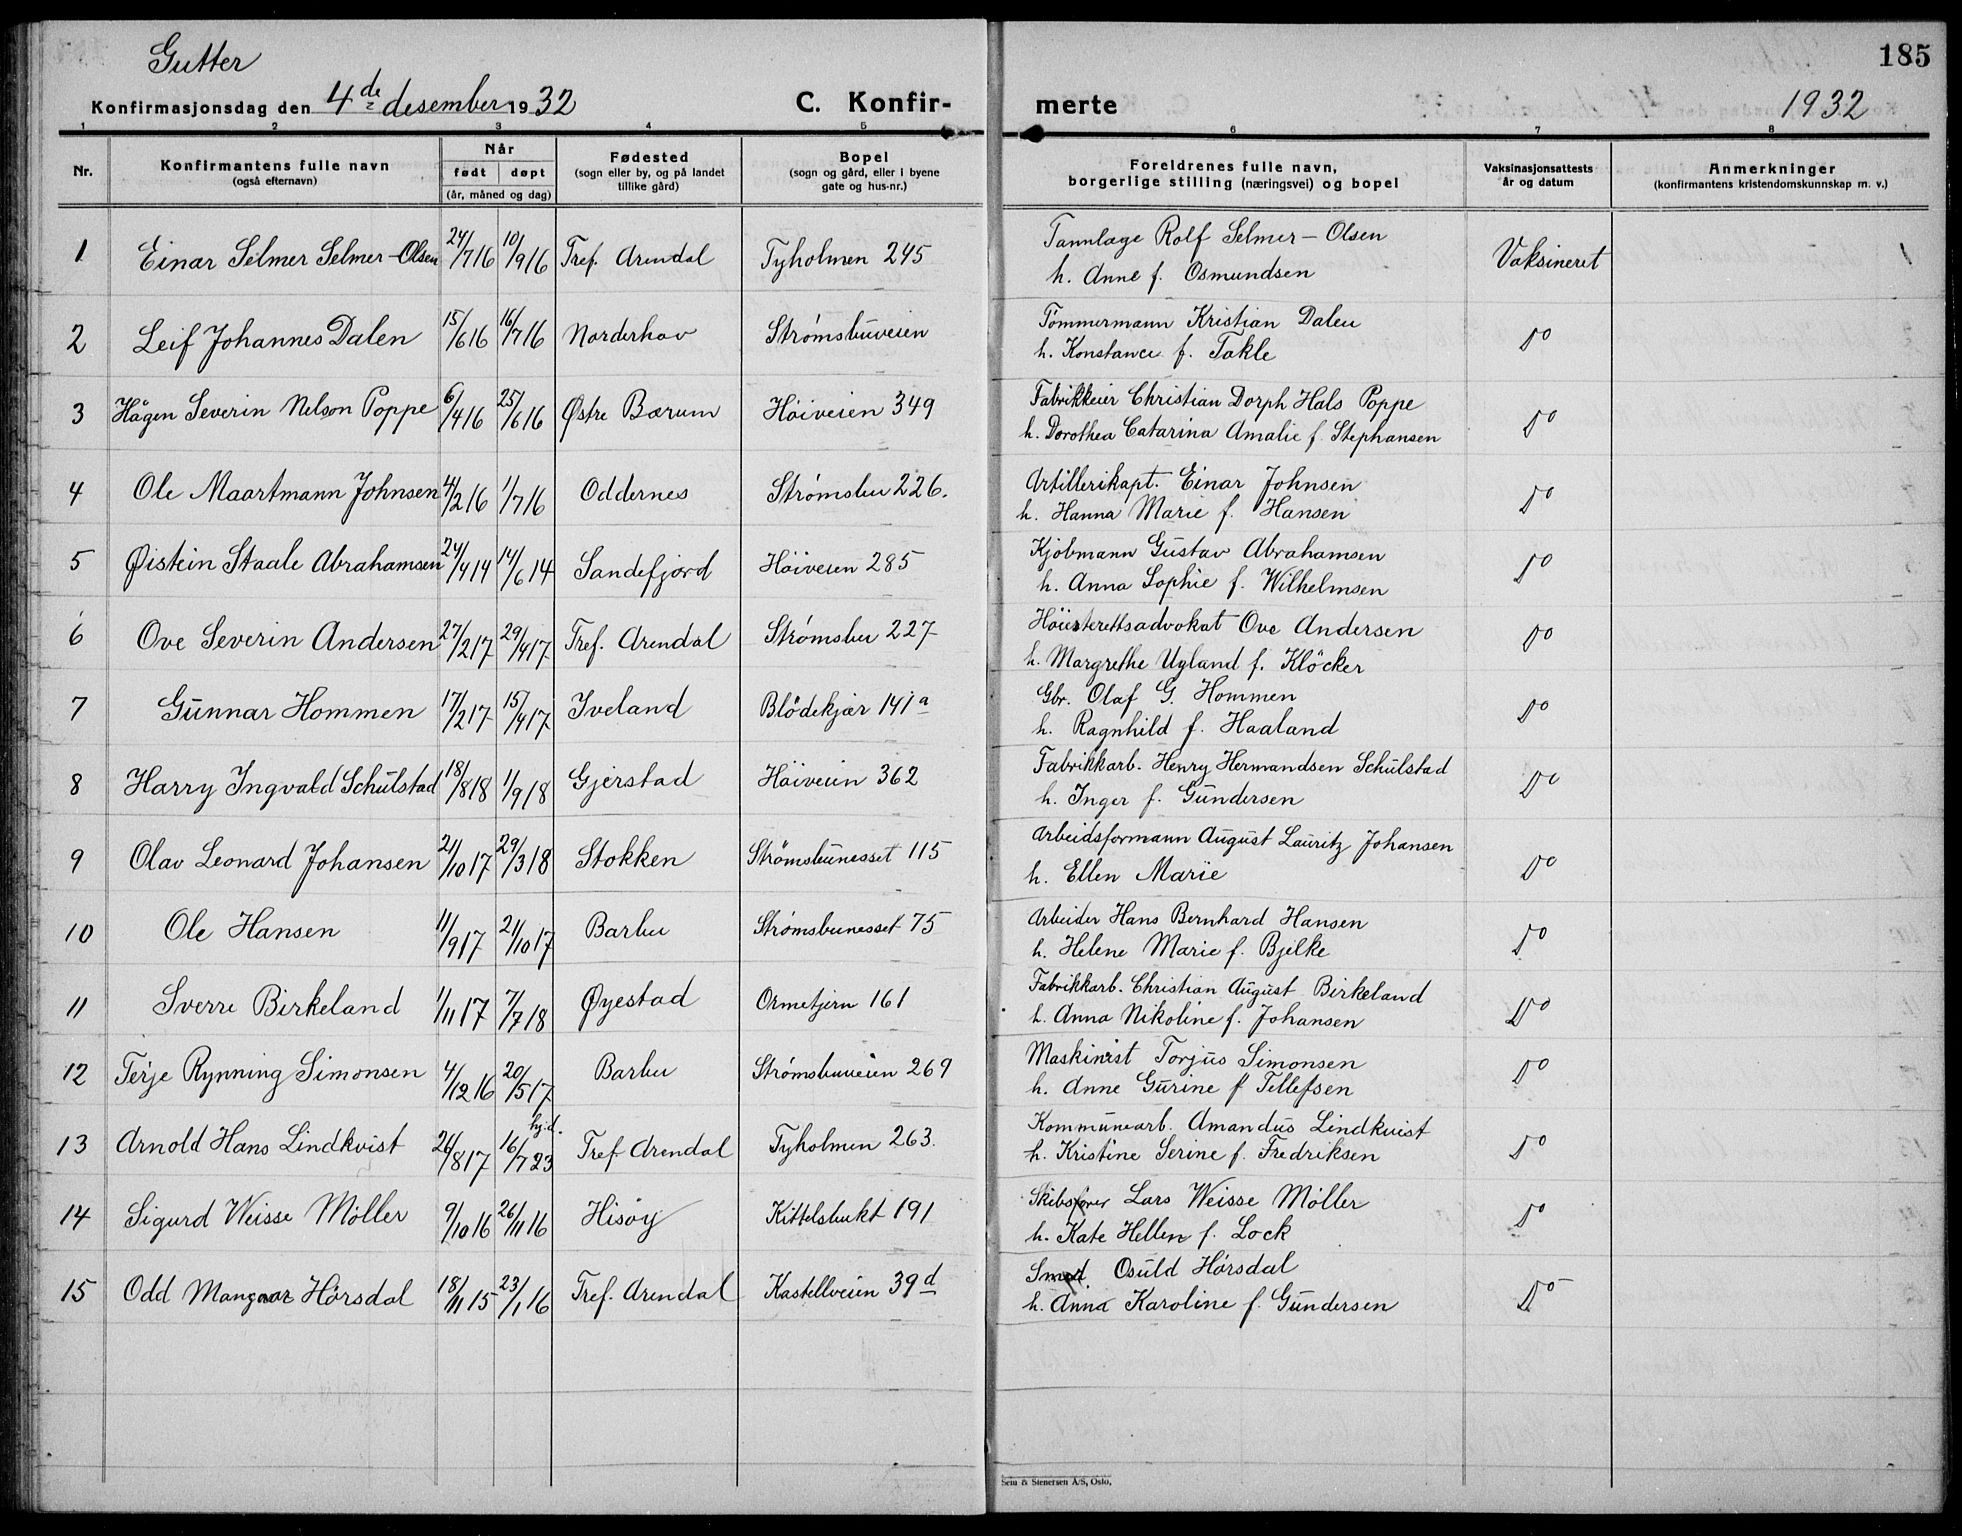 Gutter
185
Konfirmasjonsdag den 4de desember 1932 C. Konfir- merte 1932
1 2 3 4 5 6 7 8
Nr. Konfirmantens fulle navn (også efternavn) Når født døpt (år, måned og dag) Fødested (sogn eller by, og på landet tillike gård) Bopel (sogn og gård, eller i byene gate og hus-nr.) Foreldrenes fulle navn, borgerlige stilling (næringsvei) og bopel Vaksinasjonsattests år og datum Anmerkninger (konfirmantens kristendomskunnskap m. v.)
1 Einar Selmer Selmer-Olsen 24/7 16 10/9 16 Tref. Arendal Tyholmen 245 Tannlæge Rolf Selmer-Olsen Vaksineret 1
h. Anne f. Osmundsen
2 Leif Johannes Dalen 15/6 16 16/7 16 Norderhov Strømsbuveien Tömmermann Kristian Dalen Do
h. Konstance f. Takle
3 Hågen Severin Nelson Poppe 6/4 16 25/6 16 Østre Bærum Höiveien 349 Fabrikkeier Christian Dorph Hals Poppe Do
h. Dorothea Catarina Amalie f. Stephansen
4 Ole Maartmann Johnsen 4/2 16 1/7 16 Oddernes Strømsbu 226. Artillerikapt. Einar Johnsen Do
h. Hanna Marie f. Hansen
5 Øistein Staale Abrahamsen 24/4 14 14/6 14 Sandefjord Höiveien 285 Kjöbmann Gustav Abrahamsen Do
h. Anna Sophie f. Wilhelmsen
6 Ove Severin Andersen 27/2 17 29/4 17 Tref. Arendal Strømsbu 227 Höiesterettsadvokat Ove Andersen Do
h. Margrethe Ugland f. Klöcker
7 Gunnar Hommen 17/2 17 15/4 17 Iveland Blödekjær 141a Gbr. Olaf G. Hommen Do
h. Ragnhild f. Haaland
8 Harry Ingvald Schulstad 18/8 18 1/9 18 Gjerstad Höiveien 362 Fabrikkarb. Henry Hermandsen Schulstad Do
h. Inger f. Gundersen
9 Olav Leonard Johansen 21/10 17 29/3 18 Stokken Strømsbunesset 115 Arbeidsformann August Lauritz Johansen Do
h. Ellen Marie
10 Ole Hansen 11/9 17 21/10 17 Barbu Strømsbunesset 75 Arbeider Hans Bernhard Hansen Do
h. Helene Marie f. Bjelke
11 Sverre Birkeland 1/11 17 7/7 18 Øyestad Ormetjern 161 Fabrikkarb. Christian August Birkeland Do
h. Anna Nikoline f. Johansen
12 Terje Rynning Simonsen 4/12 16 20/5 17 Barbu Strømsbuveien 269 Maskinist Torjus Simonsen Do
h. Anne Gurine f Tellefsen
13 Arnold Hans Lindkvist 26/8 17 hj.d. 16/7 23 Tref. Arendal Tyholmen 263. Kommunearb. Amandus Lindkvist Do
h. Kristine Serine f. Fredriksen
14 Sigurd Weisse Möller 9/10 16 26/11 16 Hisöy Kittelsbukt 191 Skibsfører Lars Weisse Möller Do
h. Kate Hellen f. Lock
15 Odd Mangnar Hörsdal 18/11 15 23/1 16 Tref. Arendal Kastellveien 39d Smed. Osuld Hörsdal Do
h. Anna Karoline f. Gundersen
Sem & Stenersen A/S, Oslo.